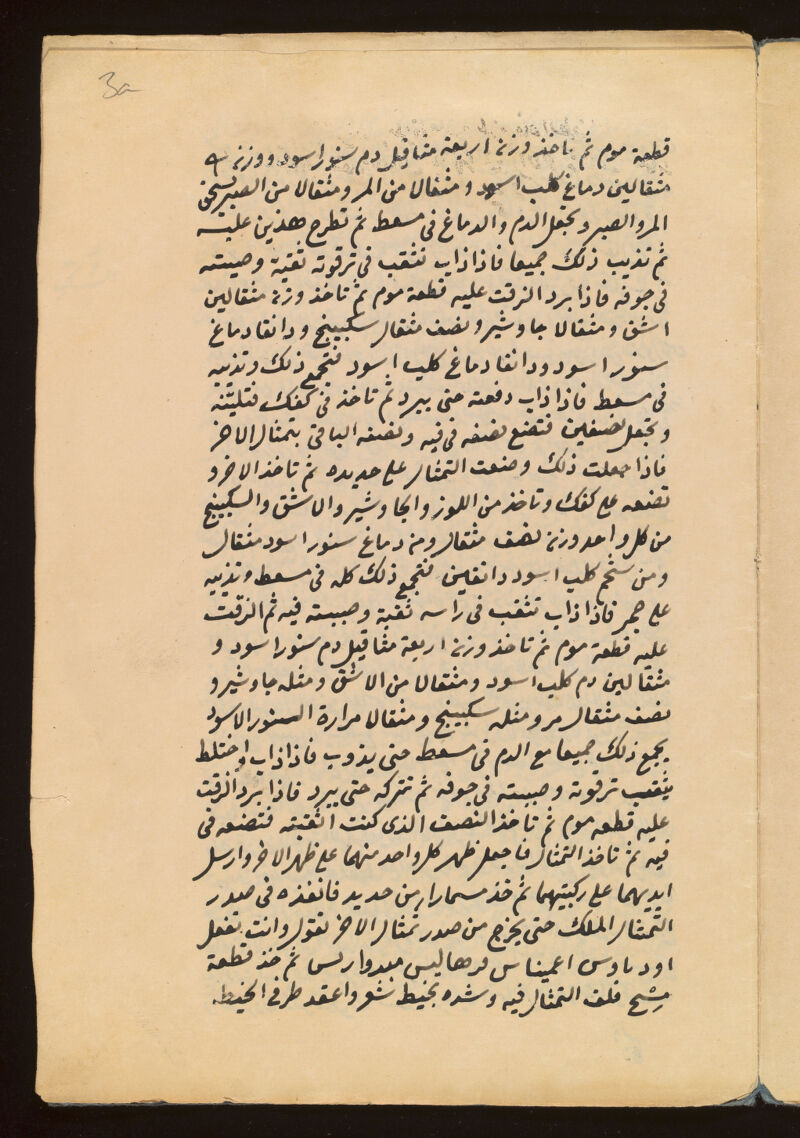 3a
قطعة موم ثم تاخذ وزن اربعة مثاقيل دم سنور اسود ووزن
مثقالين دماغ كلب اسود و مثقالا من المر ومثقالا من الصبر تسحق
المر والصبر وتجعل الدم والدماغ فى مسعط ثم تطرح هذين عليه
ثم تذيب ذلك جميعا فاذا ذاب تثقب فى ترقوته ثقبة وصببته
فى جوفه فاذا برد الزقت عليه قطعة موم ثم تاخذ وزن مثقالين
اشق ومثقالا جاوشير ونصف مثقال سكبينج ودانقا دماغ
سنور اسود ودانقا دماغ كلب اسود فتجمع ذلك وتذيبه
فى مسعط فاذا ذاب دفعته حتى يبرد ثم تاخذ فى كفك فتليّنه
وتجعل نصفين فتضع نصفه فى فيه ونصفه الباقى بتمثال الاخر
فاذا جعلت ذلك وضعت التمثال على حديده ثم تاخذ الاخر و
تضعه على كفك وتاخذ من اللوز والجاوشير والاشق والسكبينج
من كل واحد وزن نصف مثقال ومن دماغ سنور اسود مثقال
ومن شحم كلب اسود دانقين فتجمع ذلك كله فى مسعط وتذيبه
على جمر فاذا ذاب تثقب فى راسه ثقبة وصببته فيه ثم الزقت
عليه قطعة موم ثم تاخذ وزن اربعة مثاقيل دم سنور اسود و
مثقالين دم كلب اسود ومثقالا من الاشق ومثله جاوشير و
نصف مثقال مر ومثله سكبينج ومثقالا مرارة السنور الاسود
يجمع ذلك جميعا مع الدم فى مسعط حتى يذوب فاذا ذاب واختلط
يثقب ترقوته وصببته فى جوفه ثم تتركه حتى يبرد فاذا برد الزقت
عليه قطعه موم ثم تاخذ النصف الذى كنت اثقبته فتضعه فى
فيه ثم تاخذ التمثال فاجعل ظهر كل واحد منهما على ظهر الاخر وارسل
ايديهما على ركبتيهما ثم خذ مسمارا من حديد فانفذه فى صدر
التمثال الملك حتى يخرج من صدر تمثال الاخر تقول وانت تفعل
ثم خذ قطعة
مسّح فلف التمثال فيه وشده بخيط شعر واعقد طرفى الخيط.